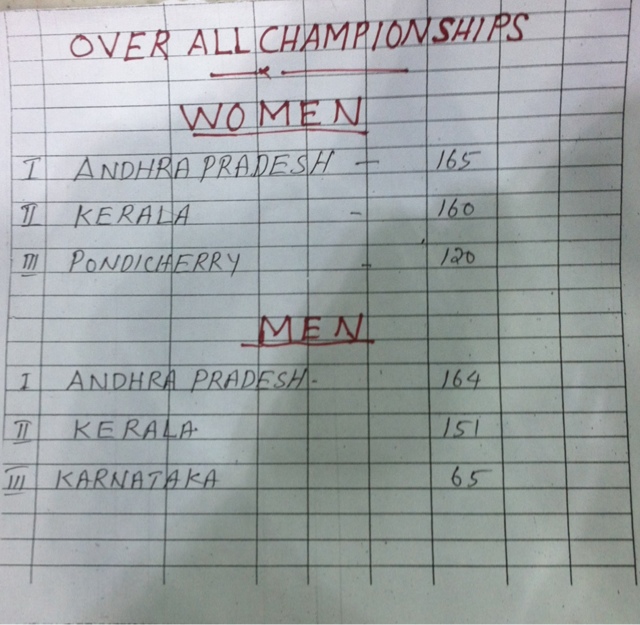 OVER ALL CHAMPIONSHIPS
WOMEN
I ANDHRA PRADESH - 165
II KERALA - 160
III PONDICHERRY - 120
MEN
I ANDHRA PRADESH - 164
II KERALA 151
III KARNATAKA 65